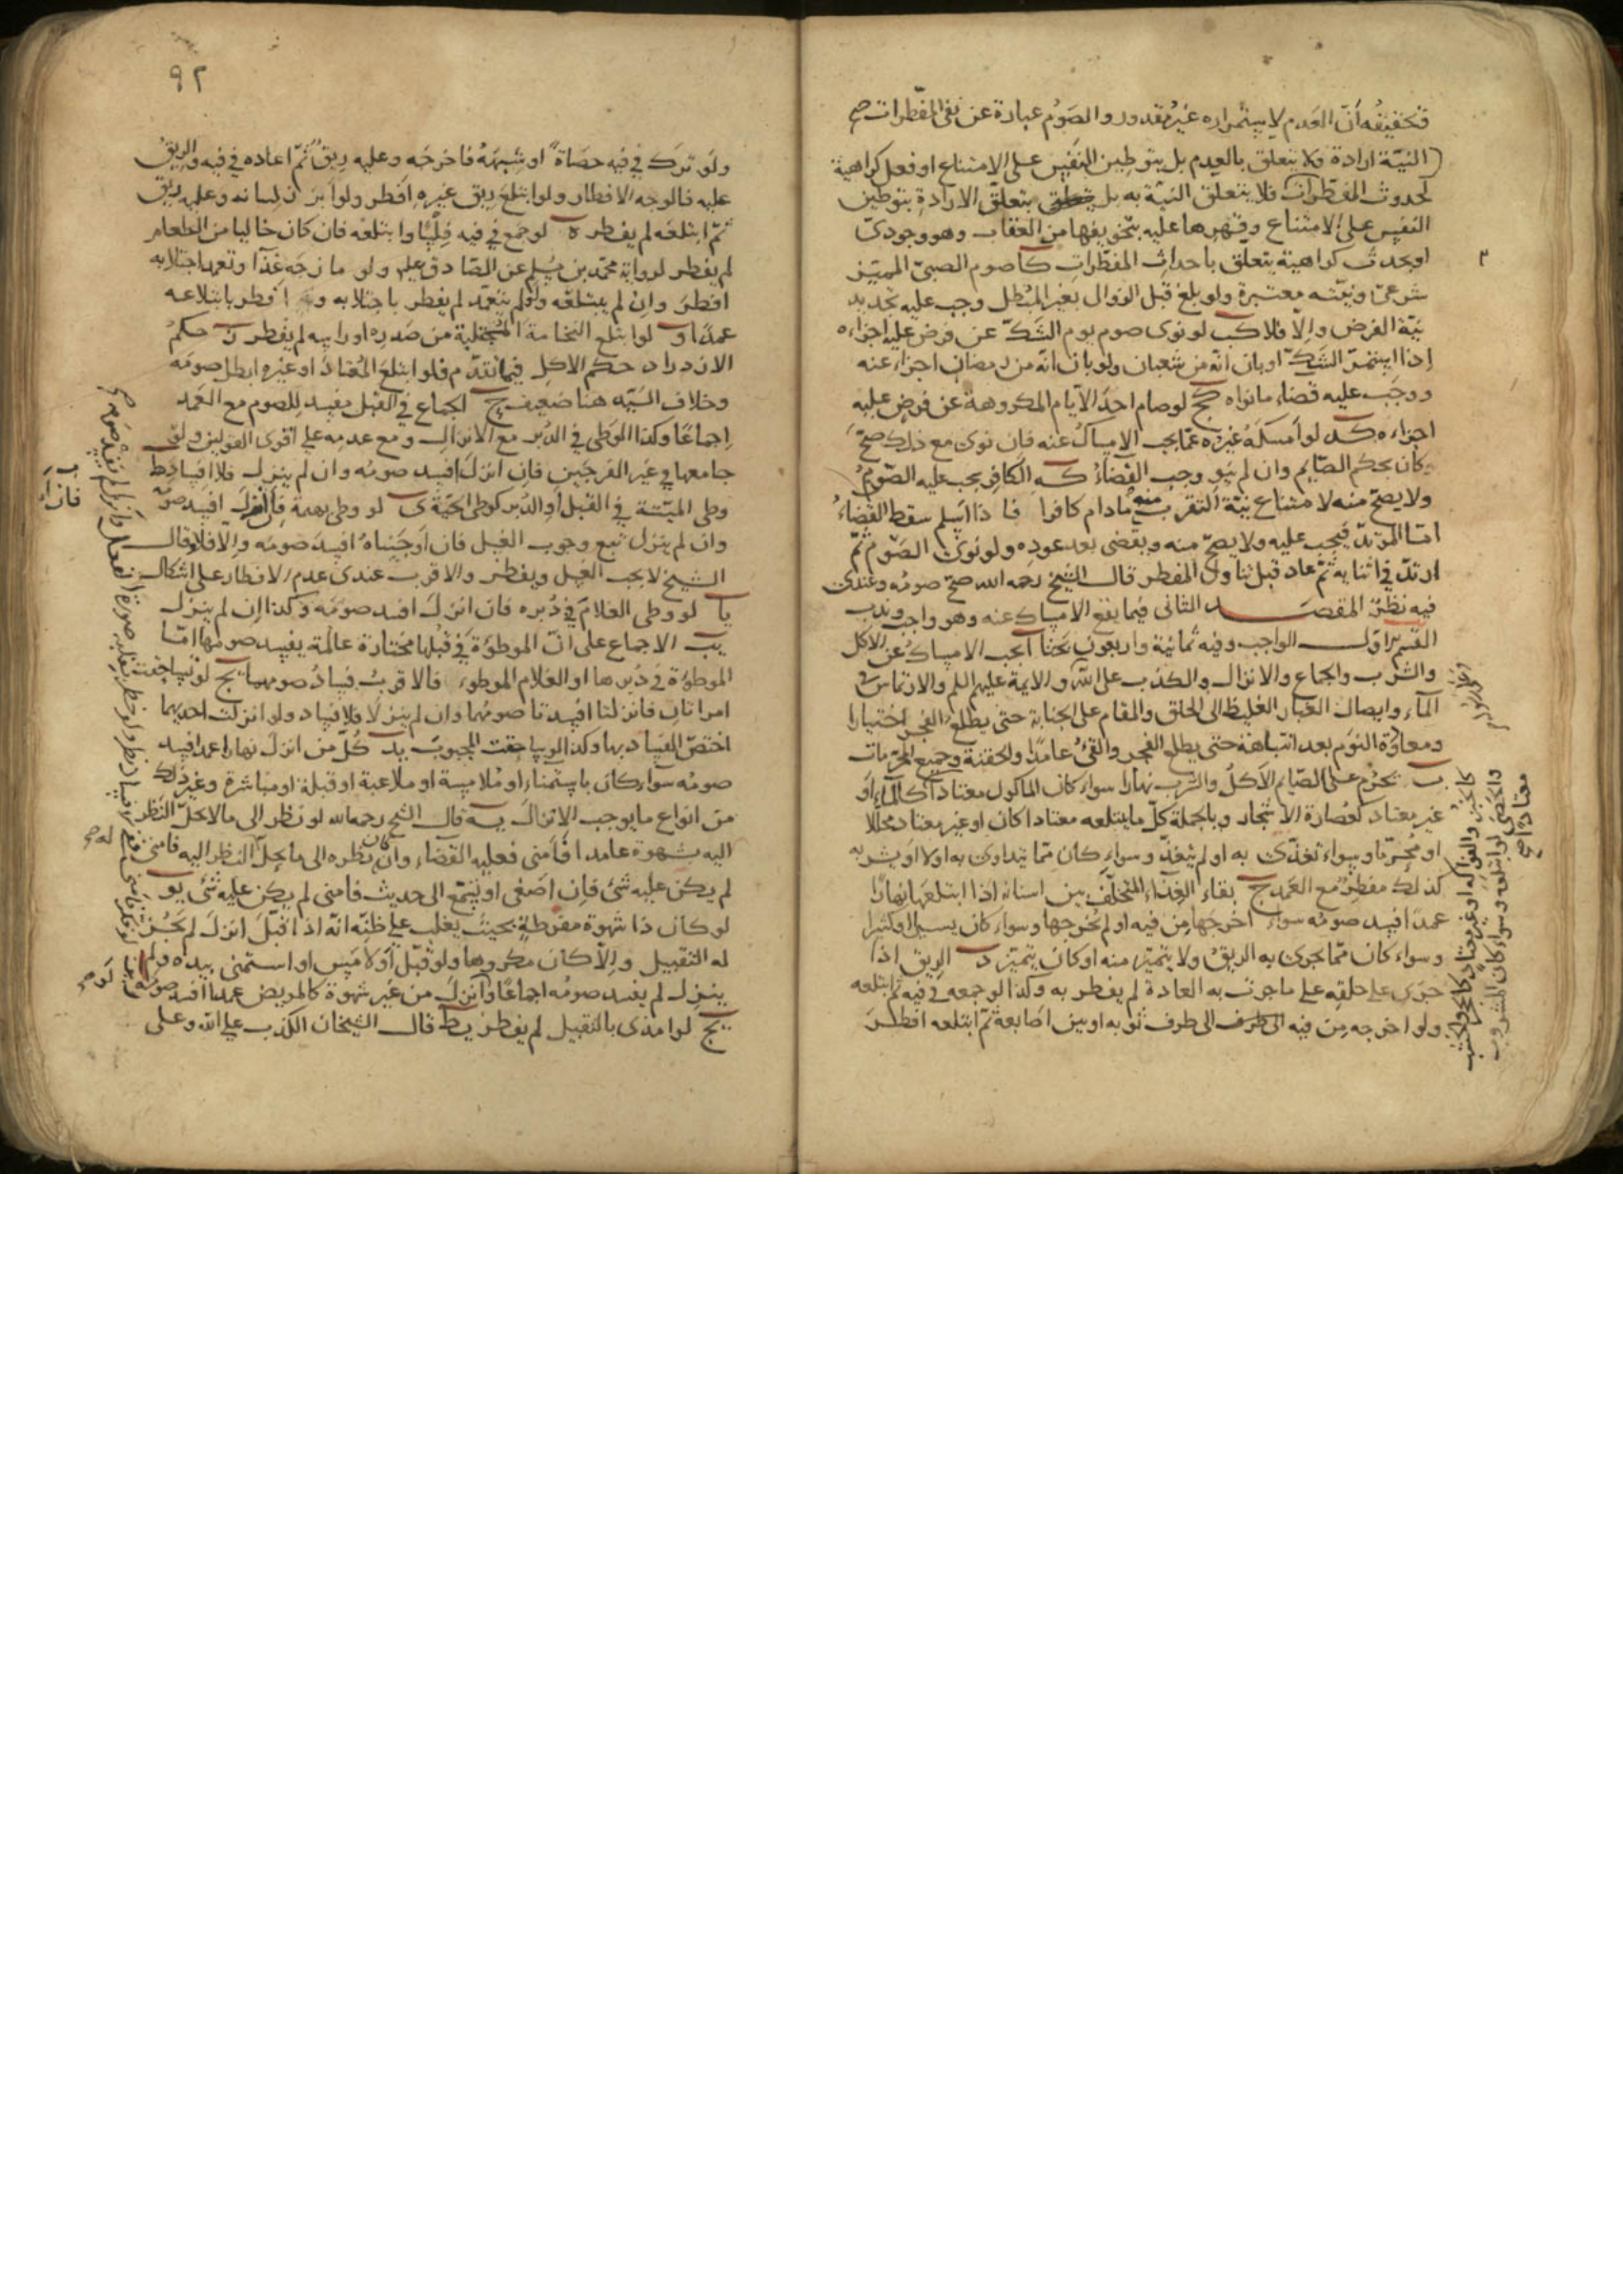 فتحقيقه أن العدم لاستمراره غير مقدور والصوم عبارة عن نفي المفطرات صح
النية ارادة فلا يتعلق بالعدم بل بتوطين النفس على الامتناع او فعل كراهية
لحدوث المفطرات فلا يتعلق النية به بل بتعلق الارادة بتوطين
النفس على الامتناع وقهرها عليه بتخويفها من العقاب وهو وجودى
او بحدث كراهية يتعلق باحداث المفطرات كا صوم الصبى المميز
شرعى ونيته معتبرة ولو بلغ قبل الزوال بغير المبطل وجب عليه تجديد
نية الفرض والا فلا كب لو نوى صوم يوم الشك عن فرض عليه اجزاءه
اذا استمر الشك او بان انه من شعبان ولو بان انه من رمضان اجزاء عنه
ووجب عليه قضاء ما نواه كج لو صام احد الايام المكروهة عن فرض عليه
اجزاءه كد لو امسكه غيره عما يجب الامساك عنه فان نوى مع ذلك صح
وكان بحكم الصايم وان لم ينو وجب القضاء كه الكافر يجب عليه الصوم
ولا يصح منه لامتناع نية التقرب منه مادام كافرا فاذا اسلم سقط القضاء
اما المرتد فيجب عليه ولا يصح منه ويقضى بعد عوده ولو نوى الصوم ثم
ارتد فى اثنايه ثم عاد قبل تناول المفطر قال الشيخ رحمه الله صح صومه وعندى
فيه نظر المقصد الثانى فيما يقع الامساك عنه وهو واجب وندب
القسم الاول الواجب وفيه ثمانية واربعون بحثا ا يجب الامساك عن الاكل
والشرب والجماع والانزال والكذب على الله والايمة عليهم السلم والارتماس فى
المآء وايصال الغبار الغليظ الى الحلق والمقام على الجنابة حتى يطلع الفجر اختيارا
ومعاودة النوم بعد انتباهة حتى يطلع الفجر والقىء عامدا والحقنة وجميع المحرمات
ب يحرم على الصايم الاكل والشرب نهارا سواء كان الماكول معتادا كالمآء او
غير معتاد كعصارة الاشجار وبالجملة كل ما يبتلعه معتادا كان او غير معتاد محللا
او محرما وسواء تغذى به او لم يتغذ وسواء كان مما يتداوى به او لا او يشربه
كذلك مفطر مع العمد ج بقاء الغذاء المتخلف بين اسنانه اذا ابتلعها نهارا
عمدا افسد صومه سواء اخرجها من فيه او لم يخرجها وسواء كان يسيرا او كثيرا
وسواء كان مما يجرى به الريق ولا يتميز منه او كان يتميز د الريق اذا
جرى على حلقه على ما جرت به العادة لم يفطر به وكذا لو جمعه فى فيه ثم ابتلعه
ولو اخرجه من فيه الى طرف ثوبه او بين اصابعه ثم ابتلعه افطر
كالخبز والفواكه او غير معتاد كالحجر والخشب
والحصى لو ابتلعه وسواء كان المشروب
معتادا صح
٩٢
ولو ترك فى فيه حصاة او شبهه فاخرجه وعليه ريق ثم اعاده فى فيه والريق
عليه فالوجه الافطار ولو ابتلع ريق غيره افطر ولو ابرز لسانه وعليه ريق
ثم ابتلعه لم يفطر ه لو جمع فى فيه قلسا وابتلعه فان كان خاليا من الطعام
لم يفطر لرواية محمد بن مسلم عن الصادق عليه السلم ولو مازجه غذآ وتعمد اجتلابه
افطر وان لم يبتلعه ولو لم يتعمد لم يفطر باجتلابه و افطر بابتلاعه
عمدا و لو ابتلع النخامة المجتلبة من صدره او راسه لم يفطر ز حكم
الازدراد حكم الاكل فيما تقدم فلو ابتلع المعتاد او غيره ابطل صومه
وخلاف السيد هنا ضعيف ح الجماع فى القبل مفسد للصوم مع العمد
اجماعا وكذا الوطى فى الدبر مع الانزال ومع عدمه على اقوى القولين ولو
جامعها فى غير الفرجين فان انزل افسد صومه وان لم ينزل فلا افساد ط
وطى الميتة فى القبل او الدبر كوطى الحية ى لو وطى بهيمة فان انزل افسد صومه
وان لم ينزل تبع وجوب الغسل فان اوجبناه افسد صومه والا فلا وقال
الشيخ لا يجب الغسل ويفطر والاقرب عندى عدم الافطار على اشكال
يا لو وطى الغلام فى دبره فان انزل افسد صومه وكذا ان لم ينزل
يب الاجماع على ان الموطوءة فى قبلها مختارة عالمة يفسد صومها اما
الموطوءة فى دبرها او الغلام الموطوء فالاقرب فساد صومهما يج لو تساحقت
امراتان فانزلتا افسدتا صومهما وان لم ينزلا فلا فساد ولو انزلت احديهما
اختص الفساد بها وكذا لو ساحقت المجبوب يد كل من انزل نهارا عمدا افسد
صومه سوآء كان باستمناء او ملامسة او ملاعبة او قبلة او مباشرة وغير ذلك
من انواع ما يوجب الانزال يه قال الشيخ رحمه الله لو نظر الى ما لا يحل النظر
اليه بشهوة عامدا فامنى فعليه القضاء وان كان نظره الى ما يحل النظر اليه فامنى
لم يكن عليه شىء فان اصغى او تسمع الى حديث فامنى لم يكن عليه شىء يو
لو كان ذا شهوة مفرطة بحيث يغلب على ظنه انه اذا قبل انزل لم يجز
له التقبيل والا كان مكروها ولو قبل او لامس او استمنى بيده ولم
ينزل لم يفسد صومه اجماعا ولو انزل من غير شهوة كالمريض عمدا افسد صومه
يح لو امذى بالتقبيل لم يفطر يط قال الشيخان الكذب على الله وعلى
فان